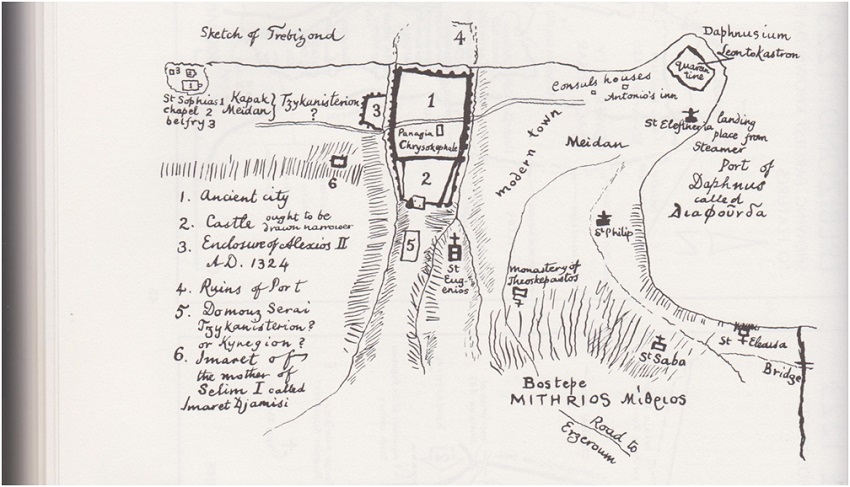 Sketch of Trebizond
4
Daphnusium
Leontokastron
Quaran
tine
3
2
1
St Sophias 1
chapel 2
belfry 3
Kapak
Meidan
Tzykanisterion
?
3
1
Panagia
Chrysokephale
2
Consuls houses
Antonio's inn
modern town
St Eleftheria
landing
place from
Steamer
Meidan
Port of
Daphnus
called
Διαφοῦνδα
6
1. Ancient city
2. Castle ought to be
drawn narrower
3. Enclosure of Alexios II
A.D. 1324
4. Ruins of Port
5. Domouz Serai
Tzykanisterion?
or Kynegion?
6. Imaret of
the mother of
Selim I called
Imaret Djamisi
5
St
Eug-
enios
St Philip
monastery of
Theoskepastos
7
St Saba
St Eleusa
Bridge
Bostepe
MITHRIOS Μίθριος
Road to
Erzeroum